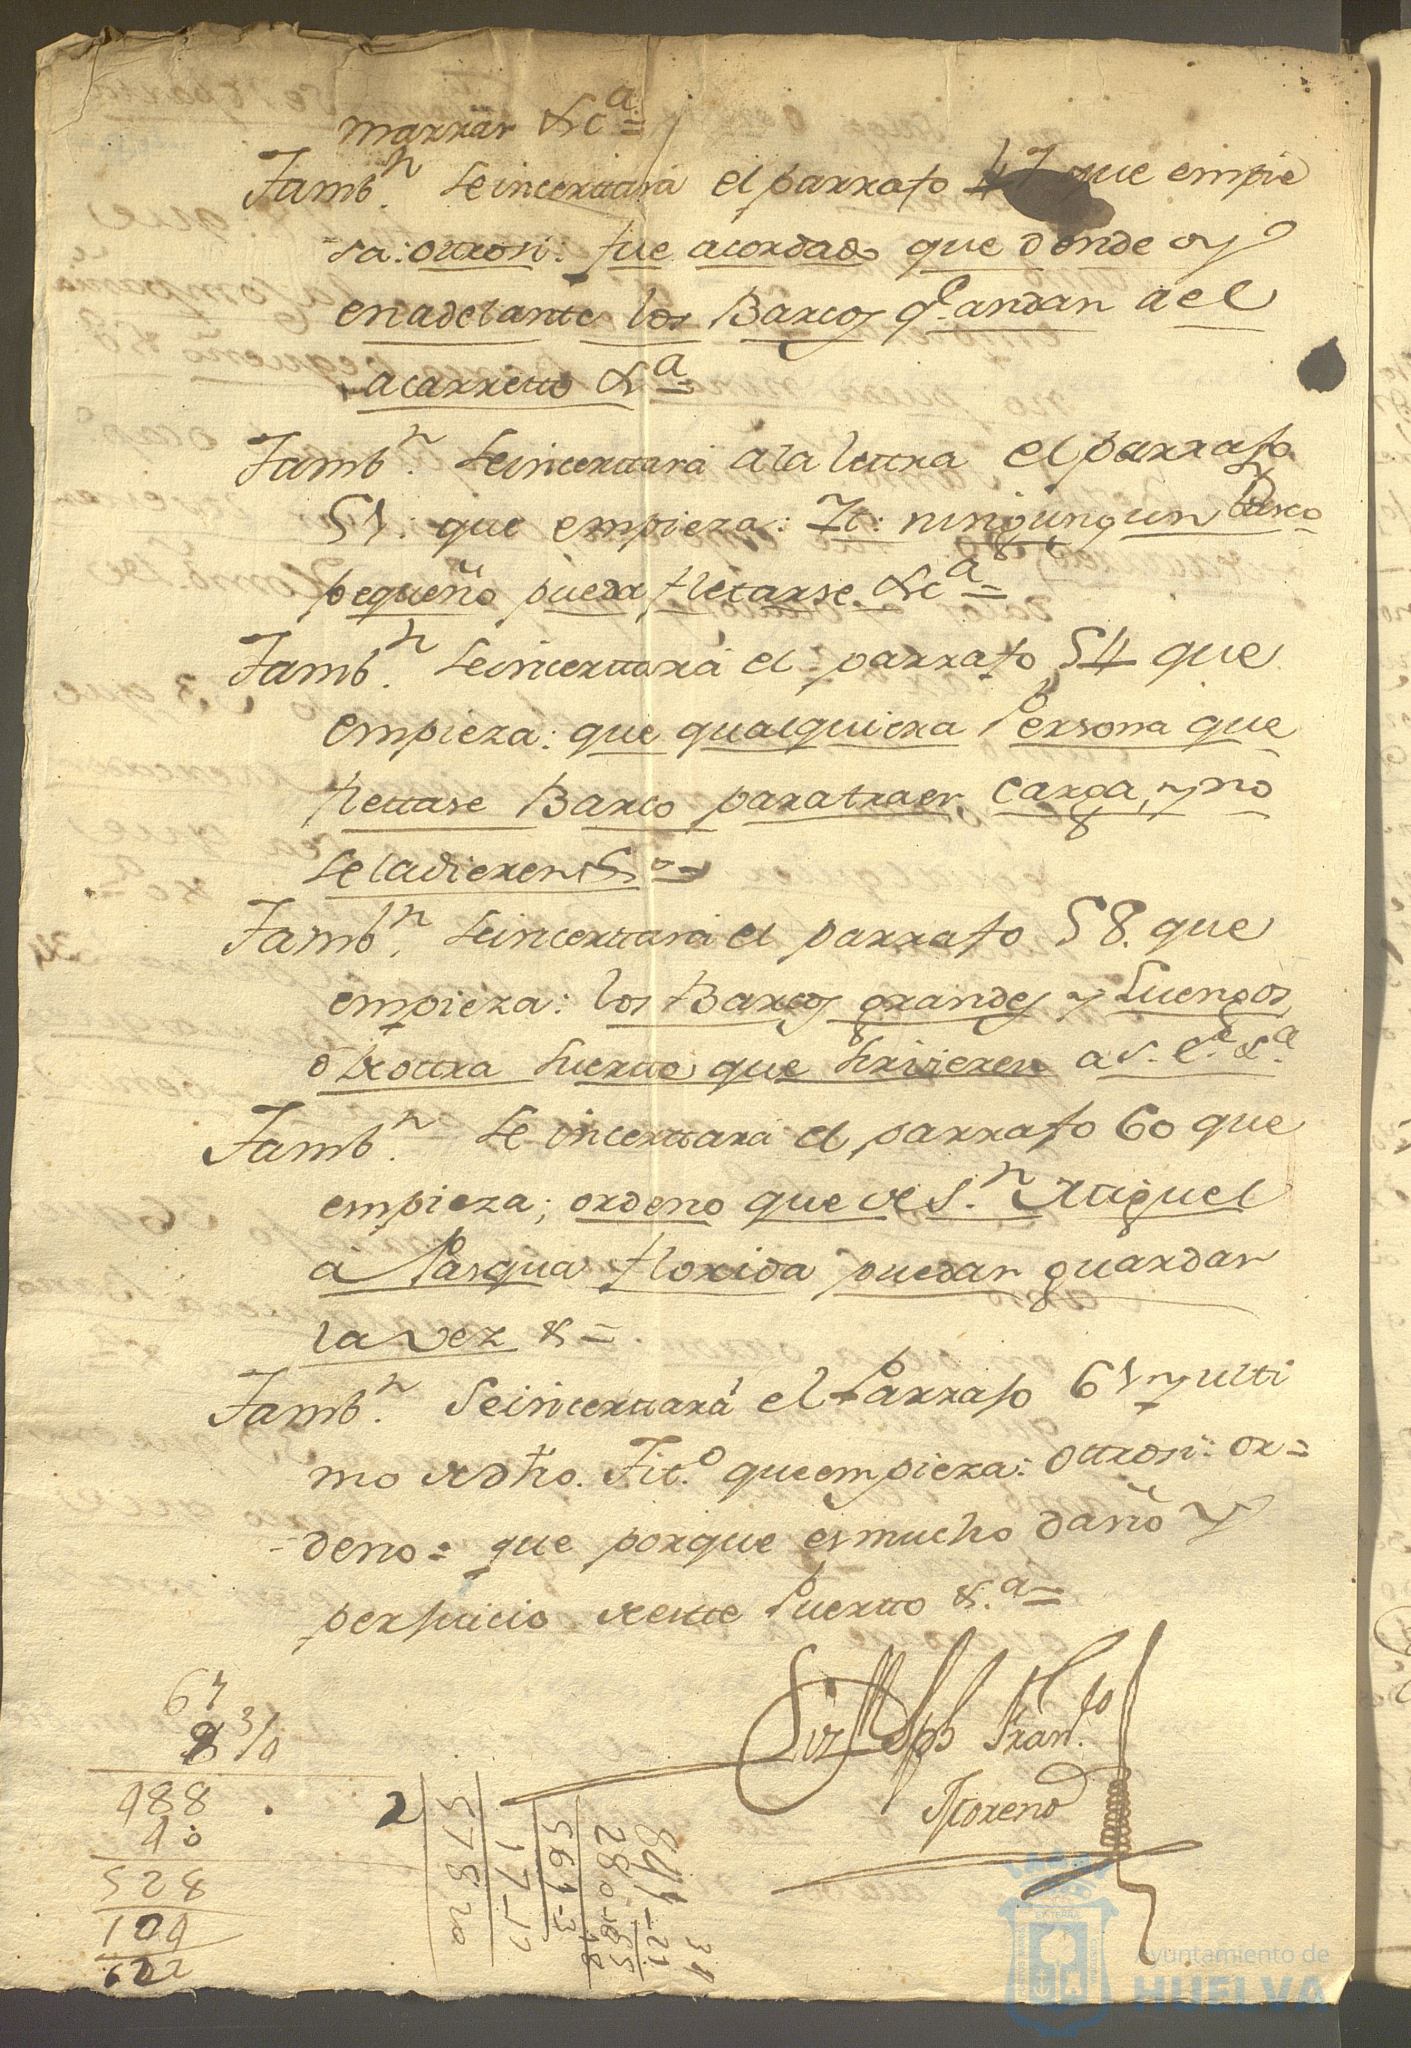 marrar &cª=
Tambⁿ. Seincerttará el parrafo 47 que empie
=sa: ottrosi: fue acordado que donde oy
enadelante los Barcos q.e andan ael
acarretto &ª=
Tambⁿ. Seincerttará ala lettra el parrafo
51: que empieza: It: ningun Barco
pequeño pueda fletarse &cª=
Tambⁿ. Seincerttará el parrafo 54 que
empieza: que qualquiera Persona que
flettase Barco paratraer carga, y no
Seladieren
Tambⁿ. Seincerttará el parrafo 58. que
empieza: los Barcos grandes y Luengos,
ó de ottra Puertto que a S. Eª &ª
Tambⁿ. Se incerttará el parrafo 60 que
empieza; ordeno que de S.ⁿ Miguel
a Pasqua florida puedan guardar
la vez &=.
Tambⁿ. Seincerttará el Parrafo 61 y ulti
mo dedho. Tit.º queempieza: Ottrosi: or=
=deno= que porque es mucho daño y
perjuicio deeste Puertto &.ª=
Liz.do Jph Fran.co
Moreno
488
40
528
104
ayuntamiento de
HUELVA